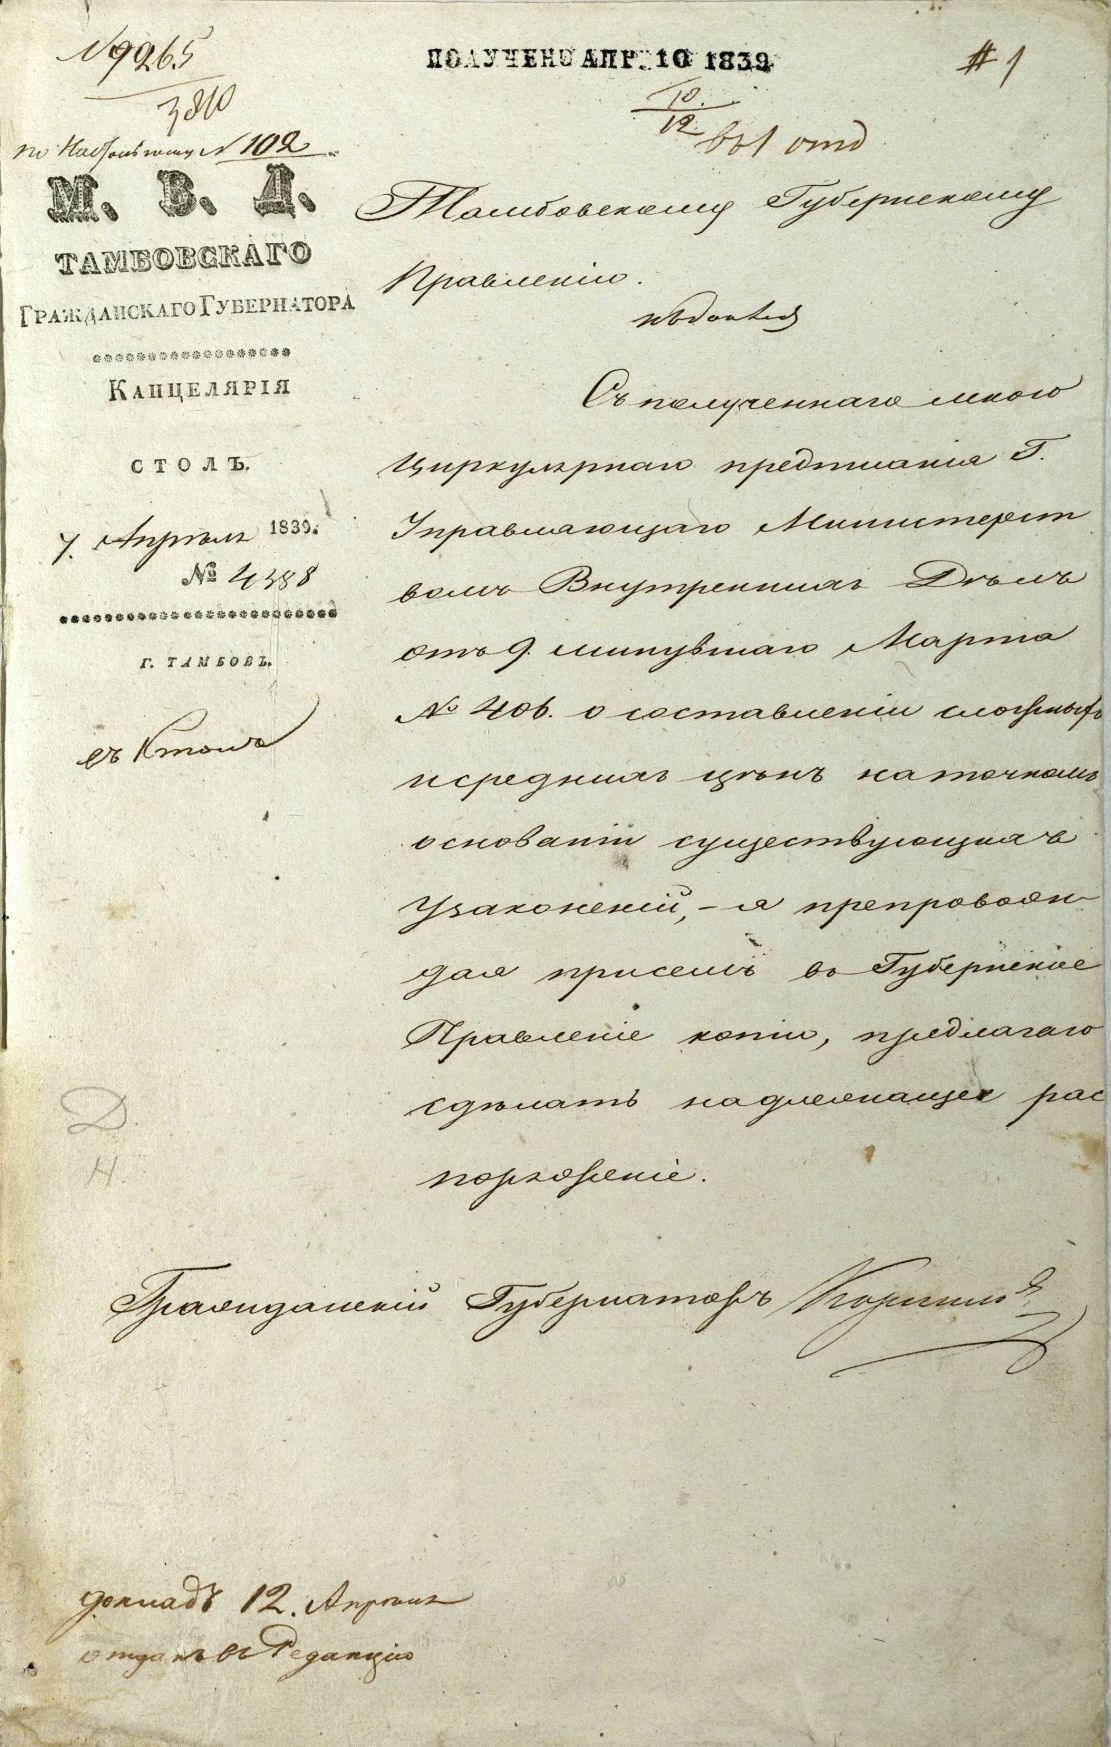 № 9265
3810
ПОЛУЧЕНО АПР. 10 1839
# 1
10.
12.
въ 1 отд
по Настольному № 102
М. В. Д.
ТАМБОВСКАГО
ГРАЖДАНСКАГО ГУБЕРНАТОРА
КАНЦЕЛЯРІЯ
СТОЛЪ.
7. Апрѣля 1839.
№ 4388
Г. ТАМБОВЪ.
Тамбовскому Губернскому
Правленію.
Съ полученнаго мною
Циркулярнаго предписанія Г.
Управляющаго Министерст
вомъ Внутреннихъ Дѣлъ
отъ 9. минувшаго Марта
№ 406. о составленіи сложныхъ
и среднихъ цѣнъ на точномъ
основаніи существующихъ
Узаконеній, - я препровож-
дая присемъ въ Губернское
Правленіе копію, предлагаю
сдѣлать надлежащее рас
поряженіе.
Гражданскій Губернаторъ Корниловъ
докладъ 12. Апрѣля
отданъ въ Редакцію
Д
Н